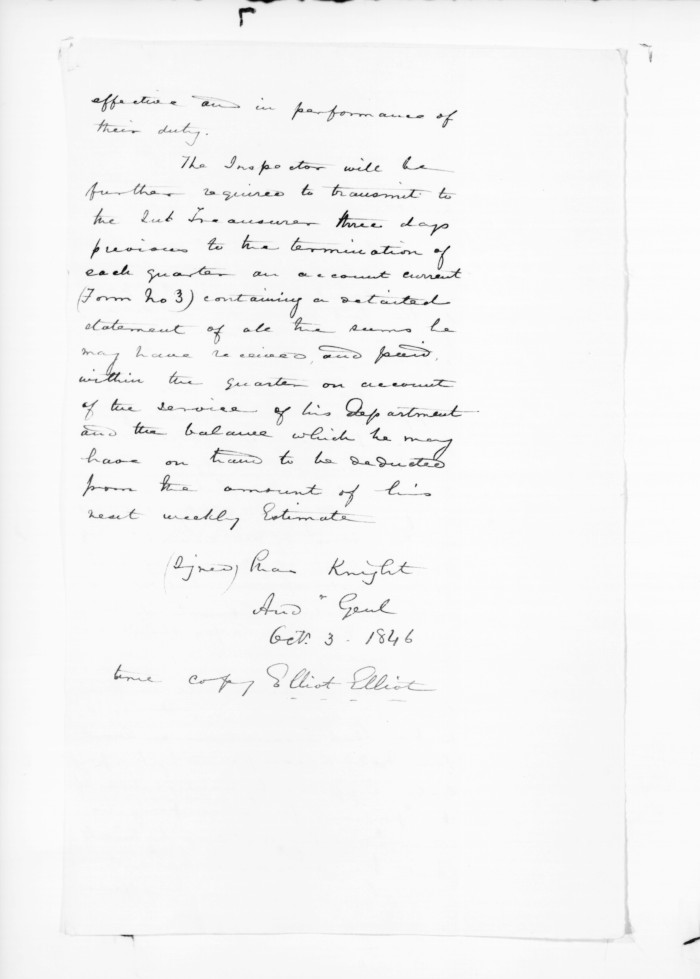 effective and in performance of
their duty.
The Inspector will be
further required to transmit to
the Sub Treasurer three days
previous to the termination of
each quarter an account current
(Form No 3) containing a detailed
statement of all the sums he
may have received, and paid,
within the quarter on account
of the service of his Department
and the balance which he may
have on hand to be deducted
from the amount of his
next weekly Estimate
(signed) Chas Knight
Aud r Genl
Oct. 3. 1846
true copy Elliot Elliot